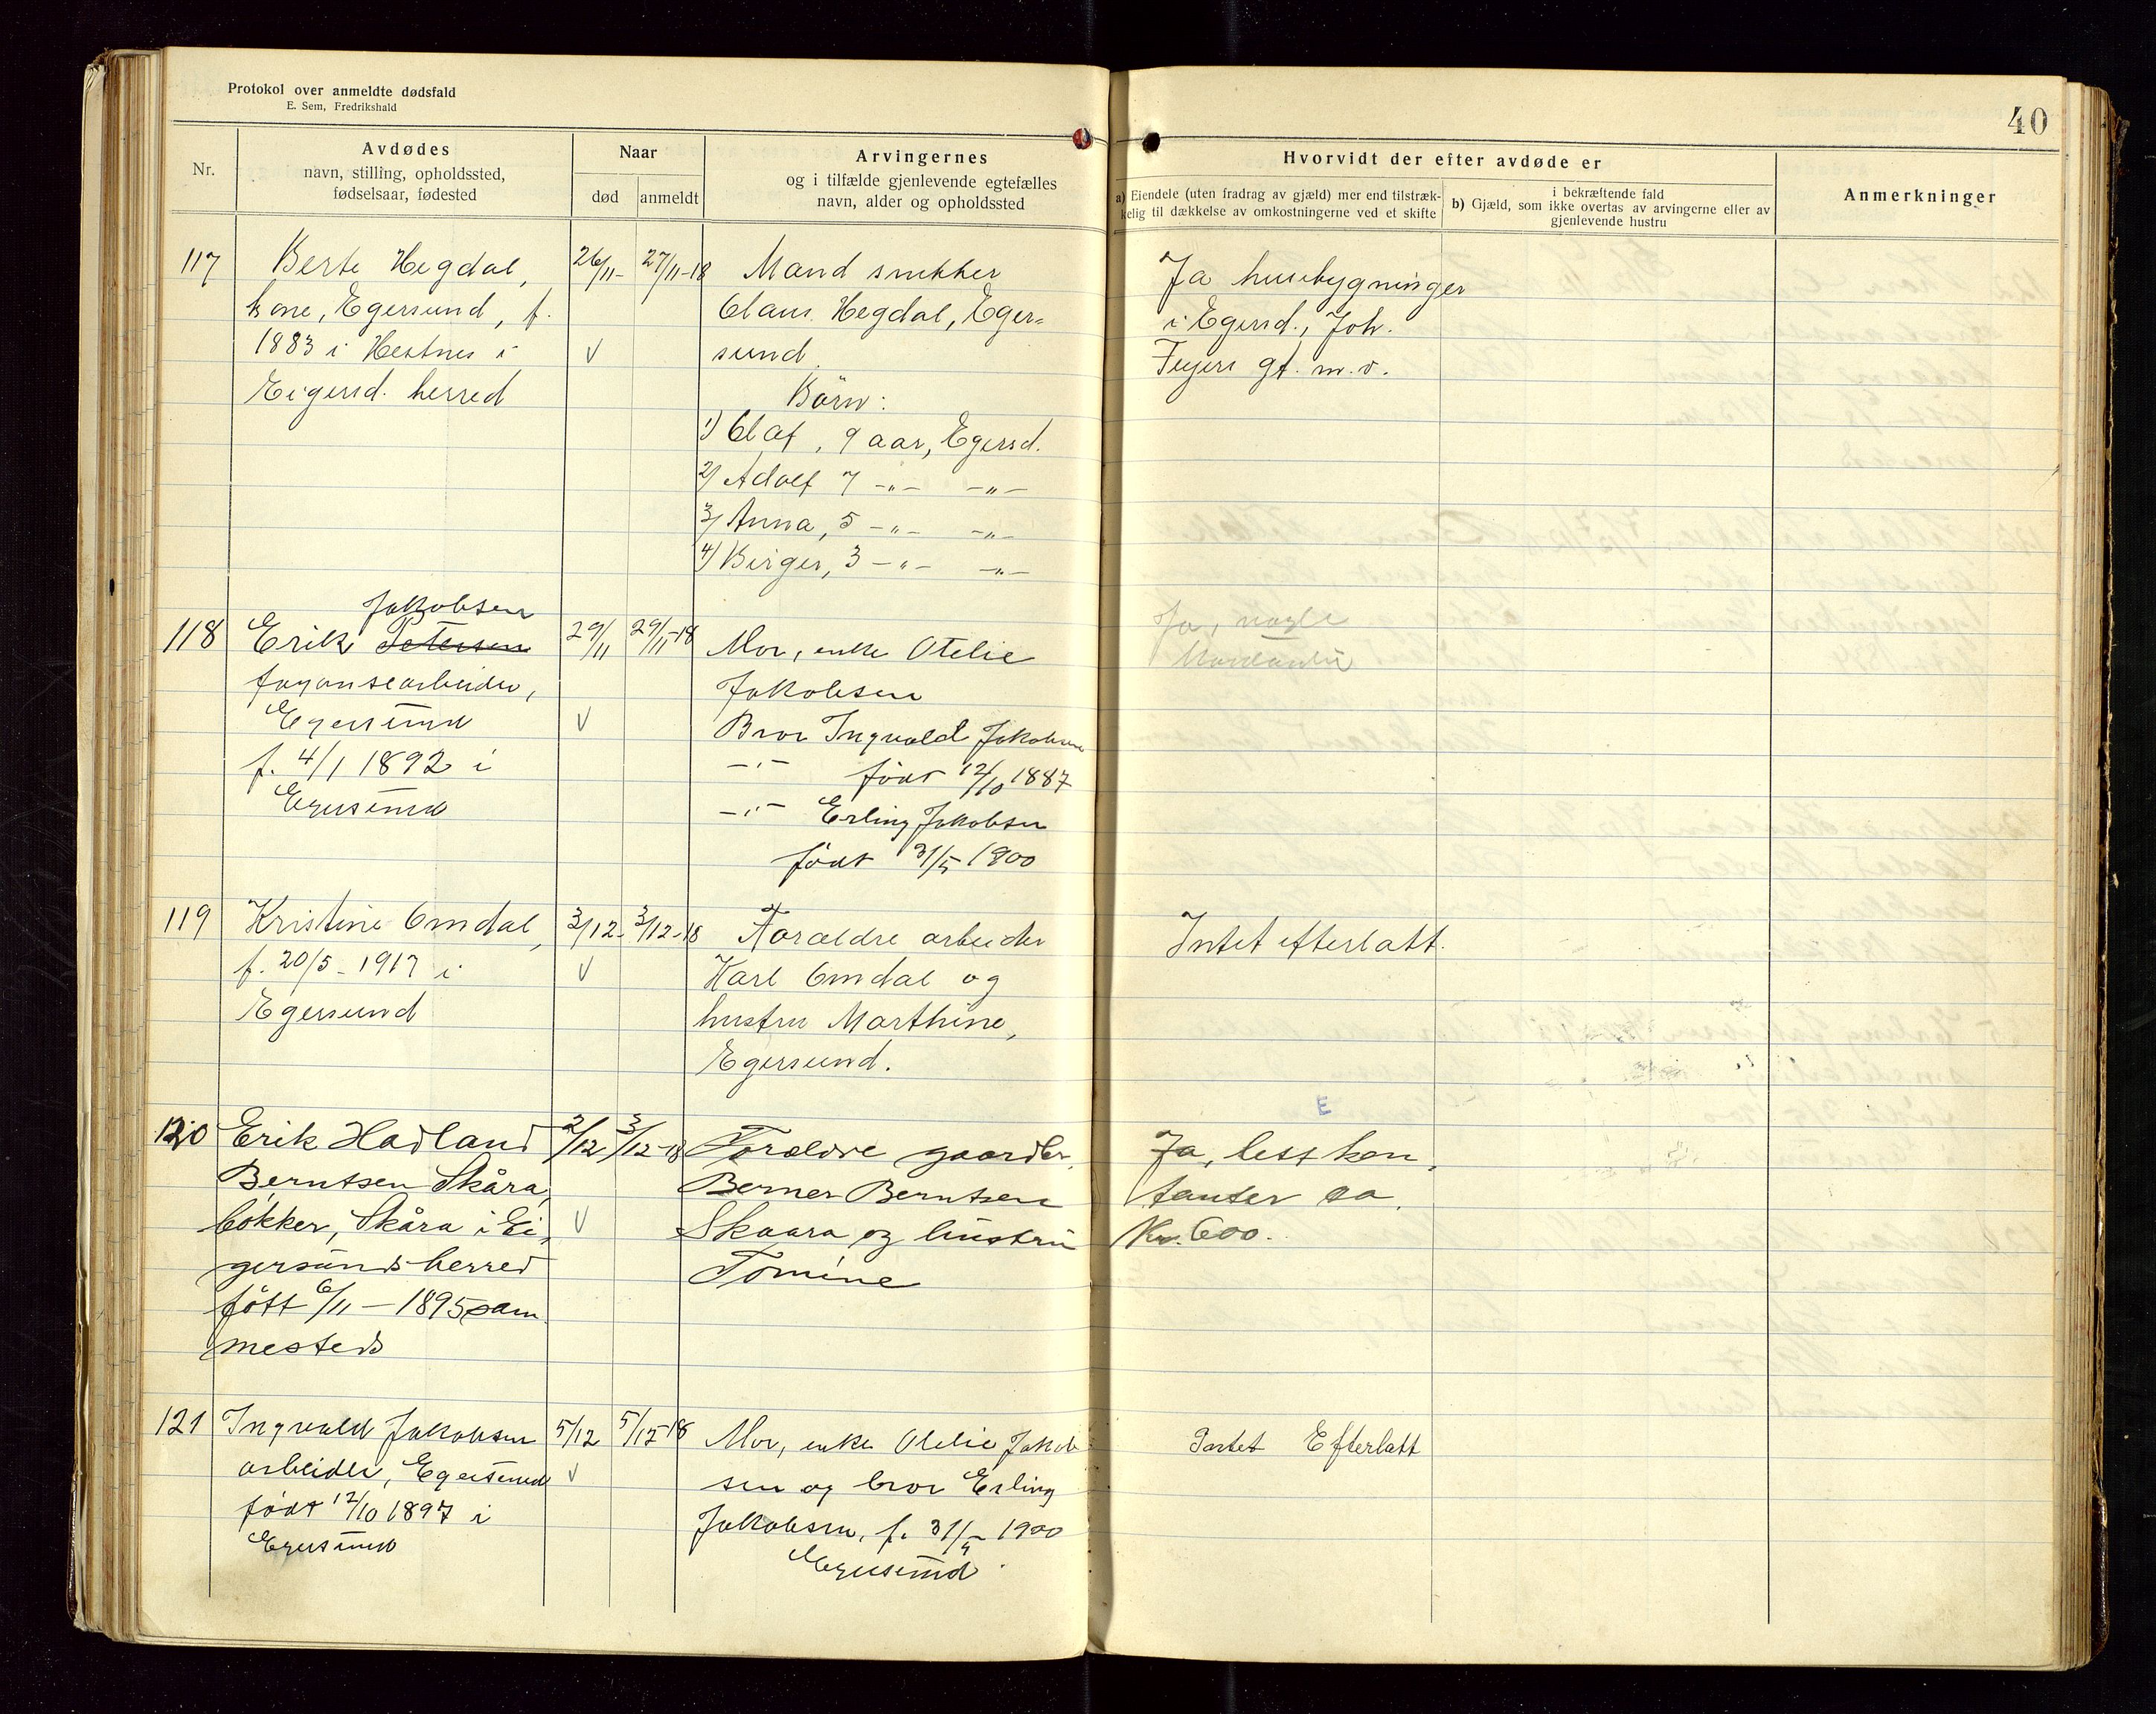 Protokol over anmeldte dødsfald
E. Sem, Fredrikshald
40
Nr.
Avdødes
navn, stilling, opholdssted,
fødselsaar, fødested
Naar
død
anmeldt
Arvingernes
og i tilfælde gjenlevende egtefælles
navn, alder og opholdssted
Hvorvidt der efter avdøde er
a) Eiendele (uten fradrag av gjæld) mer end tilstræk-
kelig til dækkelse av omkostningerne ved et skifte
i bekræftende fald
b) Gjæld, som ikke overtas av arvingerne eller av
gjenlevende hustru
Anmerkninger
117
Berte Hegdal,
kone, Egersund, f.
1883 i Hestnes i
Eigersd. herred
26/11-
27/11-18
V
Mand snekker
Olaus Hegdal, Eger=
sund
Börn:
1) Olaf, 9 aar, Egersd.
2) Adolf 7 -"- -"-
3) Anna, 5 -"- -"-
4) Birger, 3 -"- -"-
Ja husebygninger
i Egersd., Joh.
Feyers gt. m.v.
118
Jakobsen
Erik Petersen
fayansearbeider,
Egersund
f. 4/1 1892 i
Egersund
29/11
29/11-18
V
Mor, enke Otelie
Jakobsen
Bror Ingvald Jakobsen
-"- født 12/10 1887
-"- Erling Jakobsen
født 31/5 1900
Ja, nogle
119
Kristine Omdal,
f. 20/5-1917 i
Egersund
3/12-
3/12-18
V
Forældre arbeider
Karl Omdal og
hustru Marthine,
Egersund.
Intet efterlatt.
120
Erik Hadland
Berntsen Skåra,
bökker, Skåra i Ei-
gersunds herred
fött 6/11-1895 sam-
mesteds
2/12
3/12-18
V
Foreldre gaardbr.
Berner Berntsen
Skaara og hustru
Tomine
E
Ja, lest kon-
tanter ca.
Kr. 600.
121
Ingvald Jakobsen
arbeider, Egersund
født 12/10 1897 i
Egersund
5/12
5/12-18
V
Mor, enke Otelie Jakob
sen og bror Erling
Jakobsen, f. 31/5 1900
Egersund.
Intet Efterlatt